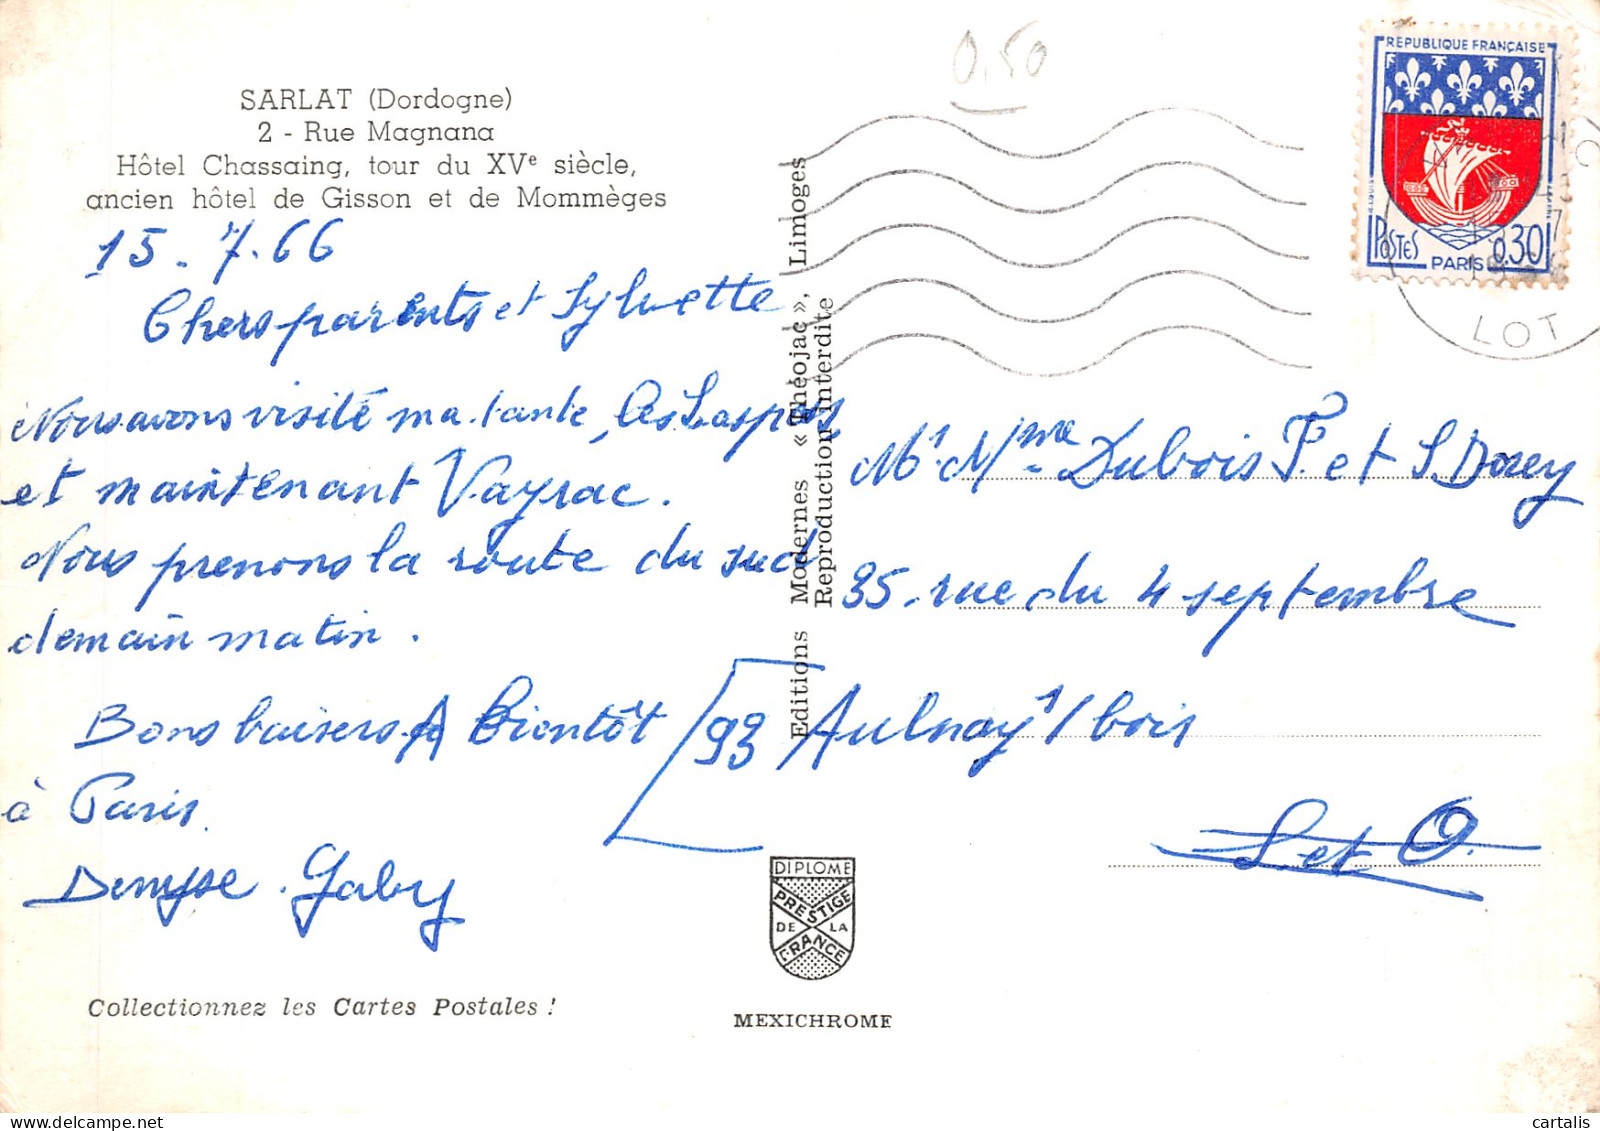 0,50
REPUBLIQUE FRANÇAISE
POSTES
PARIS
0,30
LOT
SARLAT (Dordogne)
2 - Rue Magnana
Hôtel Chassaing, tour du XVe siècle,
ancien hôtel de Gisson et de Mommèges
15. 7. 66
Chers parents et Sylvette
Nous avons visité ma tante, les Laspas
et maintenant Vayrac.
Nous prenons la route du sud
demain matin.
Bons baisers. A bientôt
à Paris.
Denyse. Gaby
Editions Modernes « Théojac », Limoges
Reproduction Interdite
Mr. Mme. Dubois F. et S. Dorey
35. rue du 4 septembre
93 Aulnay s/ bois
S. et O.
DIPLOME
PRESTIGE
DE LA
FRANCE
Collectionnez les Cartes Postales !
MEXICHROME
cartalis